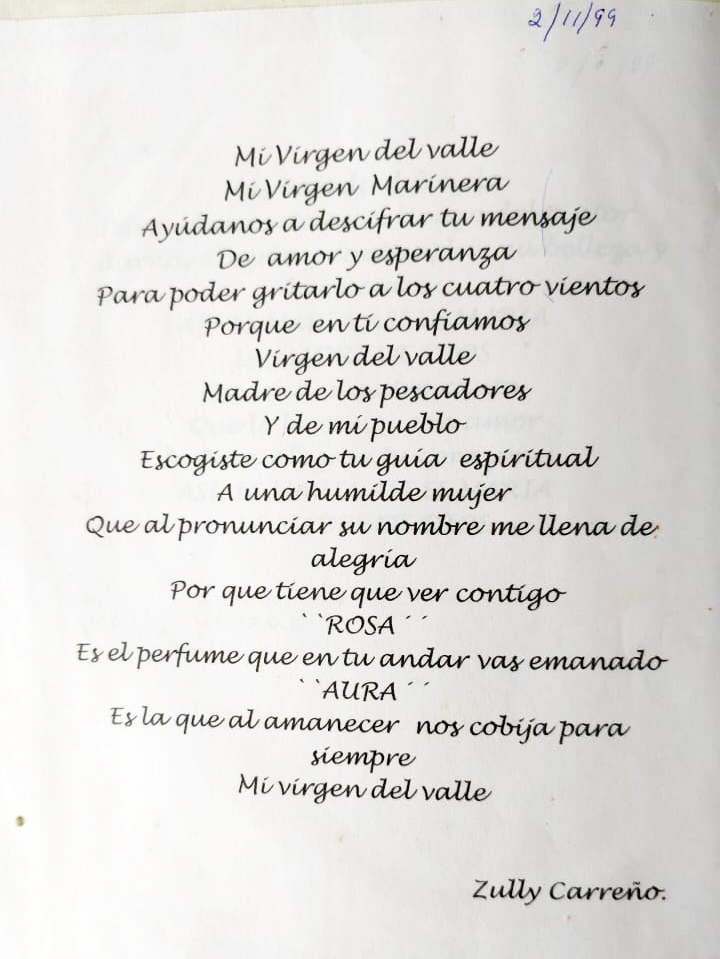 2/11/99
Mi Virgen del valle
Mi Virgen Marinera
Ayúdanos a descifrar tu mensaje
De amor y esperanza
Para poder gritarlo a los cuatro vientos
Porque en ti confiamos
Virgen del valle
Madre de los pescadores
Y de mi pueblo
Escogiste como tu guia espiritual
A una humilde mujer
Que al pronunciar su nombre me llena de
alegria
Por que tiene que ver contigo
``ROSA´´
Es el perfume que en tu andar vas emanado
``AURA´´
Es la que al amanecer nos cobija para
siempre
Mi virgen del valle
Zully Carreño.